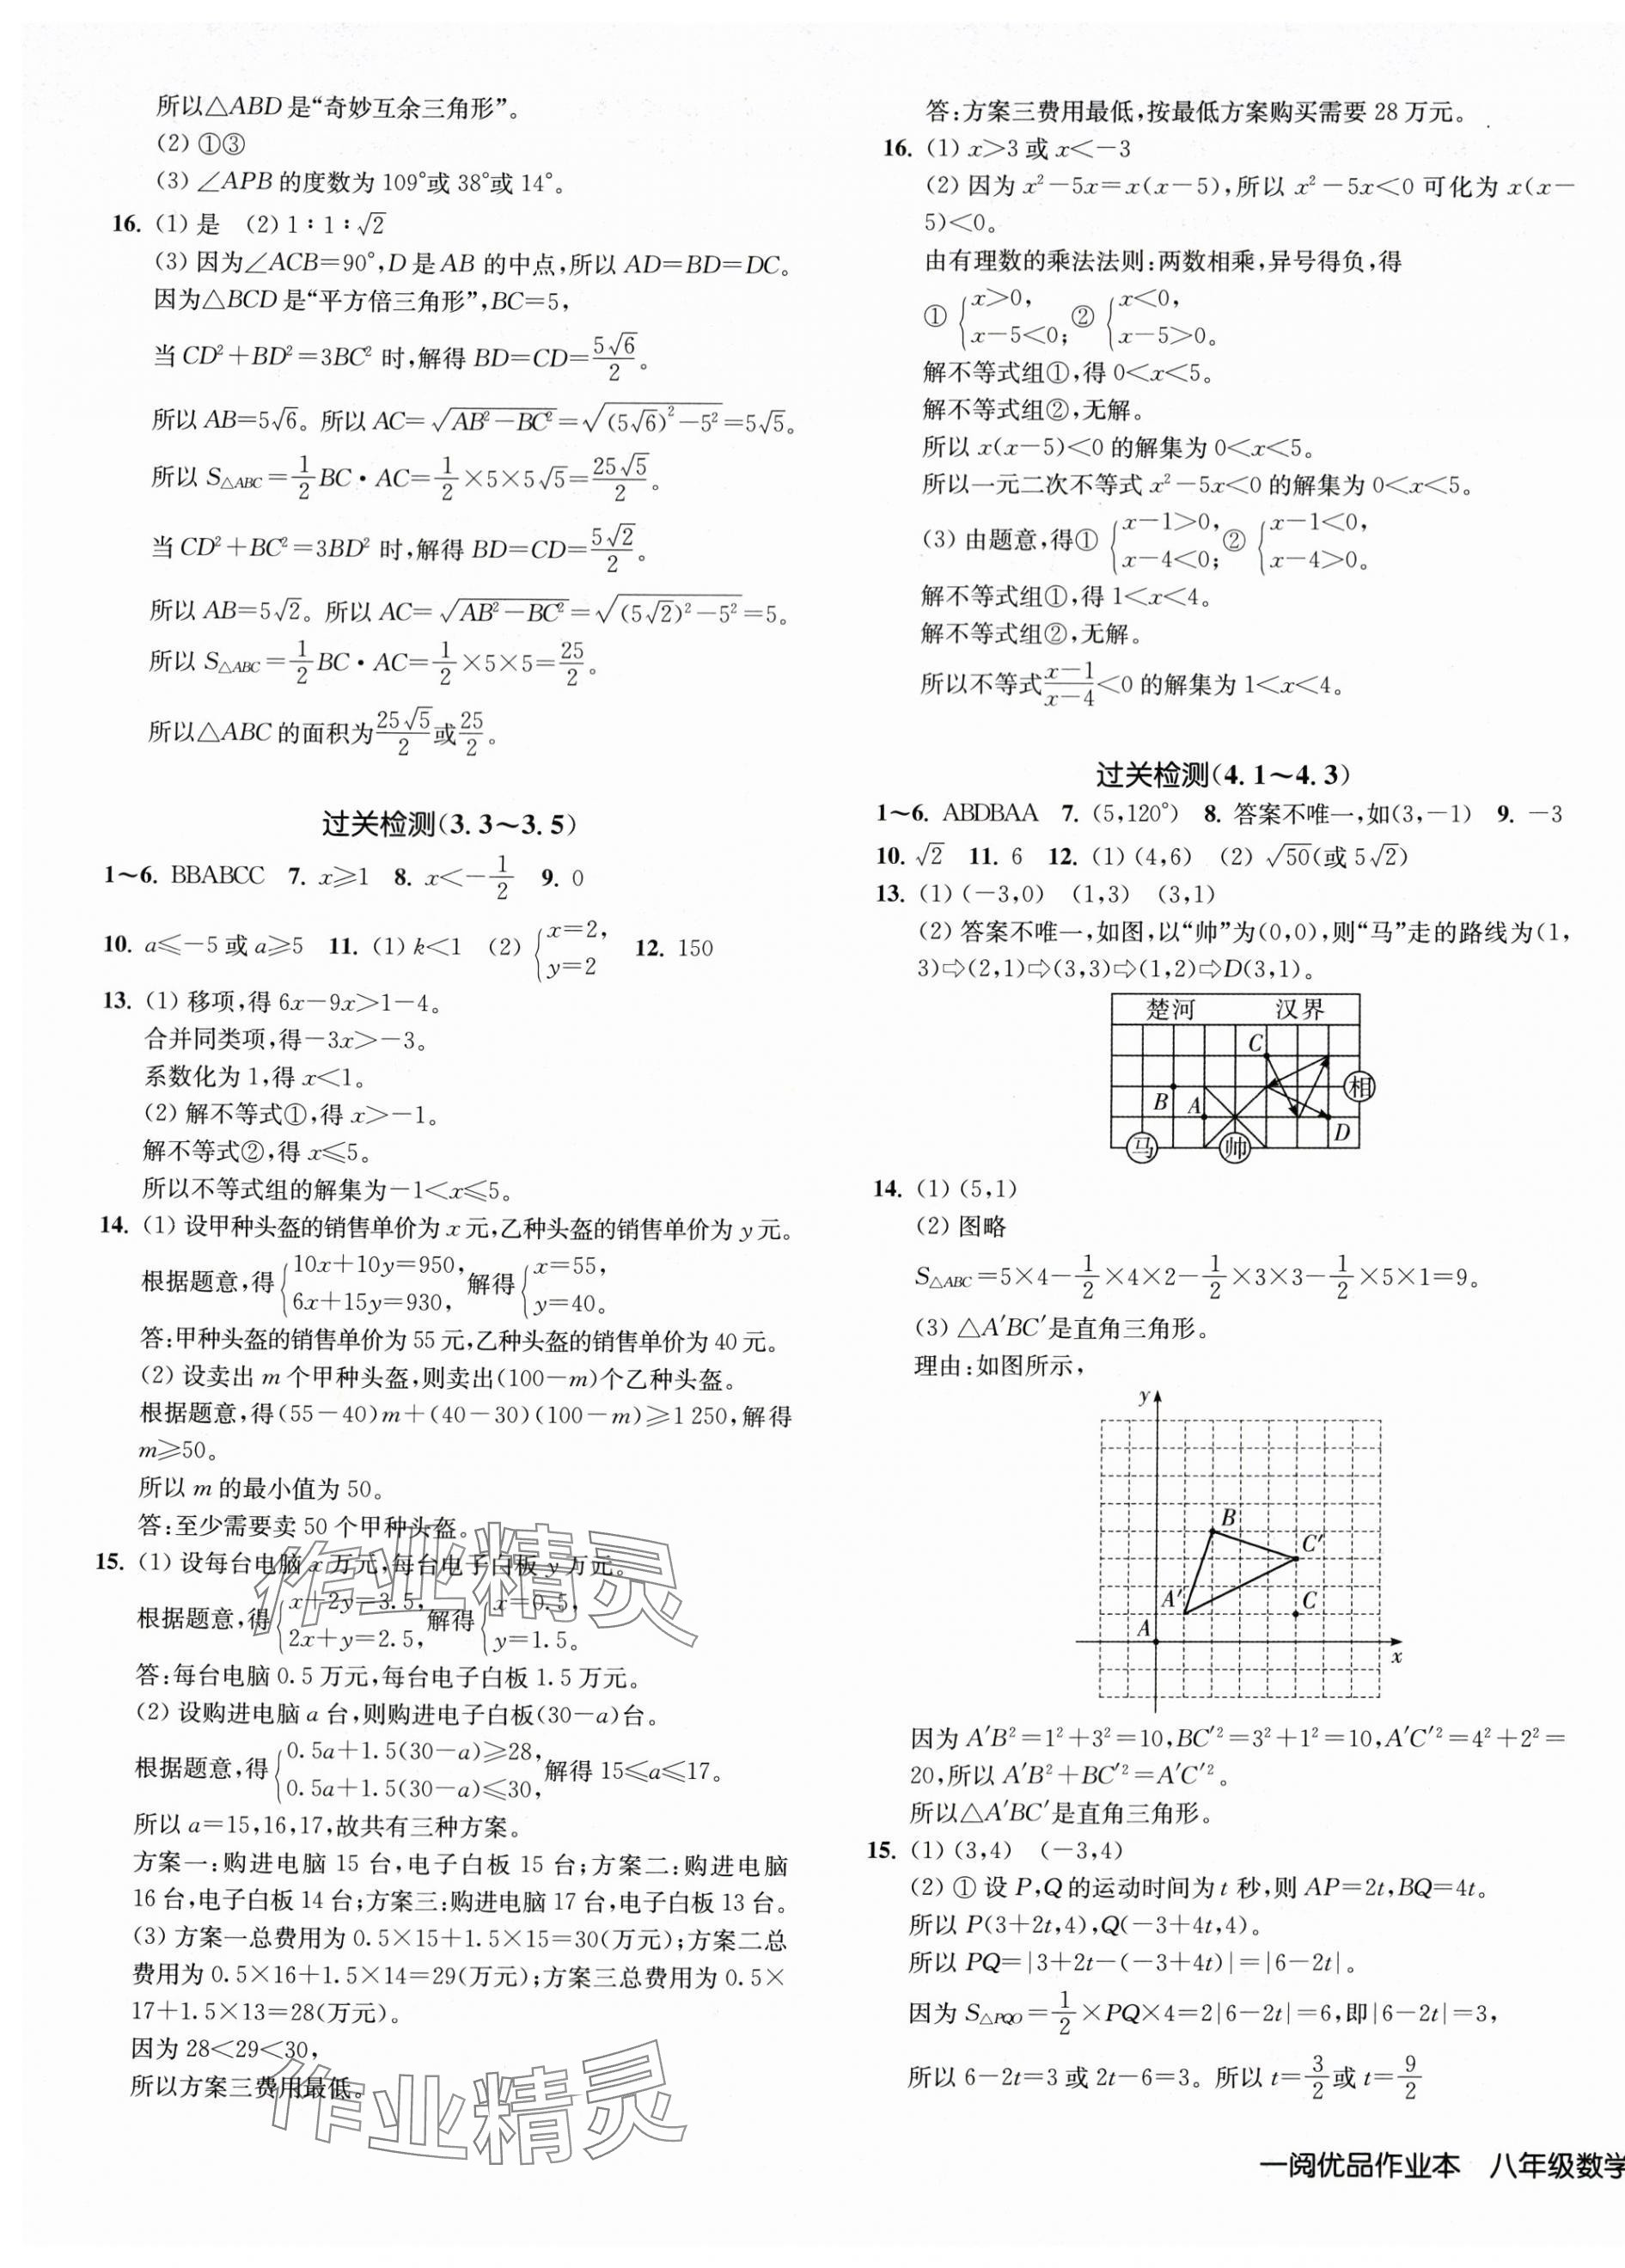 所以△ABD是“奇妙互余三角形”。
(2) ①③
(3) ∠APB的度数为109°或38°或14°。
16. (1) 是 (2) 1∶1∶√2
(3) 因为∠ACB=90°,D是AB的中点,所以AD=BD=DC。
因为△BCD是“平方倍三角形”,BC=5,
当CD²+BD²=3BC²时,解得BD=CD=5√6/2。
所以AB=5√6。所以AC=√(AB²-BC²)=√((5√6)²-5²)=5√5。
所以S△ABC=1/2 BC·AC=1/2×5×5√5=25√5/2。
当CD²+BC²=3BD²时,解得BD=CD=5√2/2。
所以AB=5√2。所以AC=√(AB²-BC²)=√((5√2)²-5²)=5。
所以S△ABC=1/2 BC·AC=1/2×5×5=25/2。
所以△ABC的面积为25√5/2或25/2。
过关检测(3.3~3.5)
1~6. BBABCC 7. x≥1 8. x<-1/2 9. 0
10. a≤-5或a≥5 11. (1) k<1 (2) {x=2, y=2 12. 150
13. (1) 移项,得6x-9x>1-4。
合并同类项,得-3x>-3。
系数化为1,得x<1。
(2) 解不等式①,得x>-1。
解不等式②,得x≤5。
所以不等式组的解集为-1<x≤5。
14. (1) 设甲种头盔的销售单价为x元,乙种头盔的销售单价为y元。
根据题意,得{10x+10y=950, 6x+15y=930, 解得{x=55, y=40。
答:甲种头盔的销售单价为55元,乙种头盔的销售单价为40元。
(2) 设卖出m个甲种头盔,则卖出(100-m)个乙种头盔。
根据题意,得(55-40)m+(40-30)(100-m)≥1 250,解得
m≥50。
所以m的最小值为50。
答:至少需要卖50个甲种头盔。
15. (1) 设每台电脑x万元,每台电子白板y万元。
根据题意,得{x+2y=3.5, 2x+y=2.5, 解得{x=0.5, y=1.5。
答:每台电脑0.5万元,每台电子白板1.5万元。
(2) 设购进电脑a台,则购进电子白板(30-a)台。
根据题意,得{0.5a+1.5(30-a)≥28, 0.5a+1.5(30-a)≤30, 解得15≤a≤17。
所以a=15,16,17,故共有三种方案。
方案一:购进电脑15台,电子白板15台;方案二:购进电脑
16台,电子白板14台;方案三:购进电脑17台,电子白板13台。
(3) 方案一总费用为0.5×15+1.5×15=30(万元);方案二总
费用为0.5×16+1.5×14=29(万元);方案三总费用为0.5×
17+1.5×13=28(万元)。
因为28<29<30,
所以方案三费用最低。
作业精灵
作业精灵
答:方案三费用最低,按最低方案购买需要28万元。
16. (1) x>3或x<-3
(2) 因为x²-5x=x(x-5),所以x²-5x<0可化为x(x-
5)<0。
由有理数的乘法法则:两数相乘,异号得负,得
① {x>0, x-5<0; ② {x<0, x-5>0。
解不等式组①,得0<x<5。
解不等式组②,无解。
所以x(x-5)<0的解集为0<x<5。
所以一元二次不等式x²-5x<0的解集为0<x<5。
(3) 由题意,得① {x-1>0, x-4<0; ② {x-1<0, x-4>0。
解不等式组①,得1<x<4。
解不等式组②,无解。
所以不等式(x-1)/(x-4)<0的解集为1<x<4。
过关检测(4.1~4.3)
1~6. ABDBAA 7. (5,120°) 8. 答案不唯一,如(3,-1) 9. -3
10. √2 11. 6 12. (1) (4,6) (2) √50(或5√2)
13. (1) (-3,0) (1,3) (3,1)
(2) 答案不唯一,如图,以“帅”为(0,0),则“马”走的路线为(1,
3)⇨(2,1)⇨(3,3)⇨(1,2)⇨D(3,1)。
楚河 汉界
C
相
B A
D
马 帅
14. (1) (5,1)
(2) 图略
S△ABC=5×4-1/2×4×2-1/2×3×3-1/2×5×1=9。
(3) △A′BC′是直角三角形。
理由:如图所示,
y
B
C′
A′ C
A
x
因为A′B²=1²+3²=10,BC′²=3²+1²=10,A′C′²=4²+2²=
20,所以A′B²+BC′²=A′C′²。
所以△A′BC′是直角三角形。
15. (1) (3,4) (-3,4)
(2) ① 设P,Q的运动时间为t秒,则AP=2t,BQ=4t。
所以P(3+2t,4),Q(-3+4t,4)。
所以PQ=|3+2t-(-3+4t)|=|6-2t|。
因为S△PQO=1/2×PQ×4=2|6-2t|=6,即|6-2t|=3,
所以6-2t=3或2t-6=3。所以t=3/2或t=9/2
一阅优品作业本 八年级数学